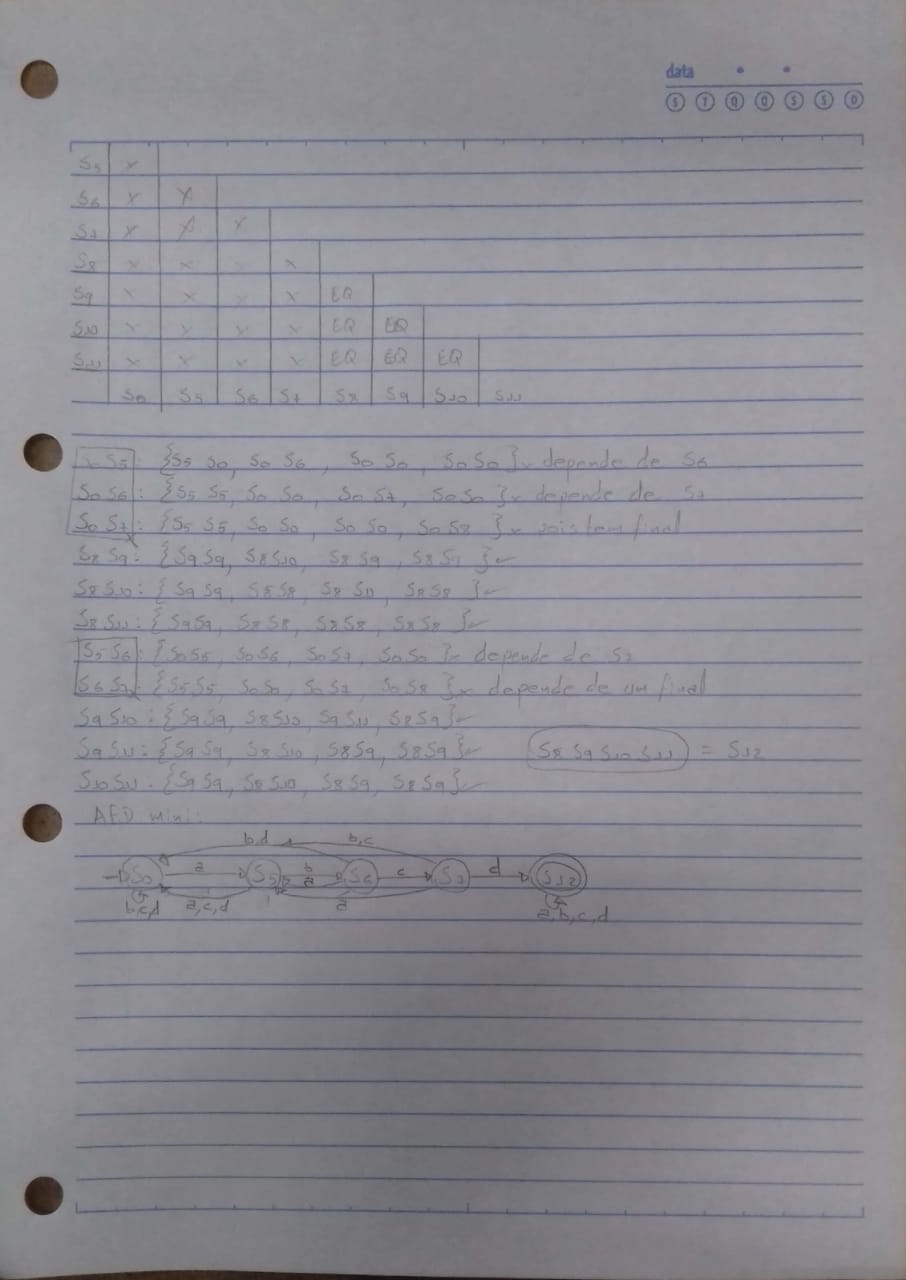 data
S T Q Q S S D
S5 x
S6 x x
S7 x x x
S8 x x x x
S9 x x x x EQ
S10 x x x x EQ EQ
S11 x x x x EQ EQ EQ
S0 S5 S6 S7 S8 S9 S10 S11
S5: {S5 S0, S0 S6, S0 S0, S0 S0}x depende de S6
S0 S6: {S5 S5, S0 S0, S0 S7, S0 S0}x depende de S7
S0 S7: {S5 S5, S0 S0, S0 S0, S0 S8}x S8 tem final
S8 S9: {S9 S9, S8 S10, S8 S9, S8 S9}✓
S8 S10: {S9 S9, S8 S8, S8 S11, S8 S8}✓
S8 S11: {S9 S9, S8 S8, S8 S8, S8 S8}✓
S5 S6: {S0 S5, S0 S6, S0 S7, S0 S0}x depende de S7
S6 S7: {S5 S5, S0 S0, S0 S7, S0 S8}x depende de um final
S9 S10: {S9 S9, S8 S10, S9 S11, S8 S9}✓
S9 S11: {S9 S9, S8 S10, S8 S9, S8 S9}✓ S8 S9 S10 S11 = S12
S10 S11: {S9 S9, S8 S10, S8 S9, S8 S9}✓
AFD mini:
b,d b,c
S0 a S5 b a S6 c S7 d S12
b,c,d a,c,d a a,b,c,d